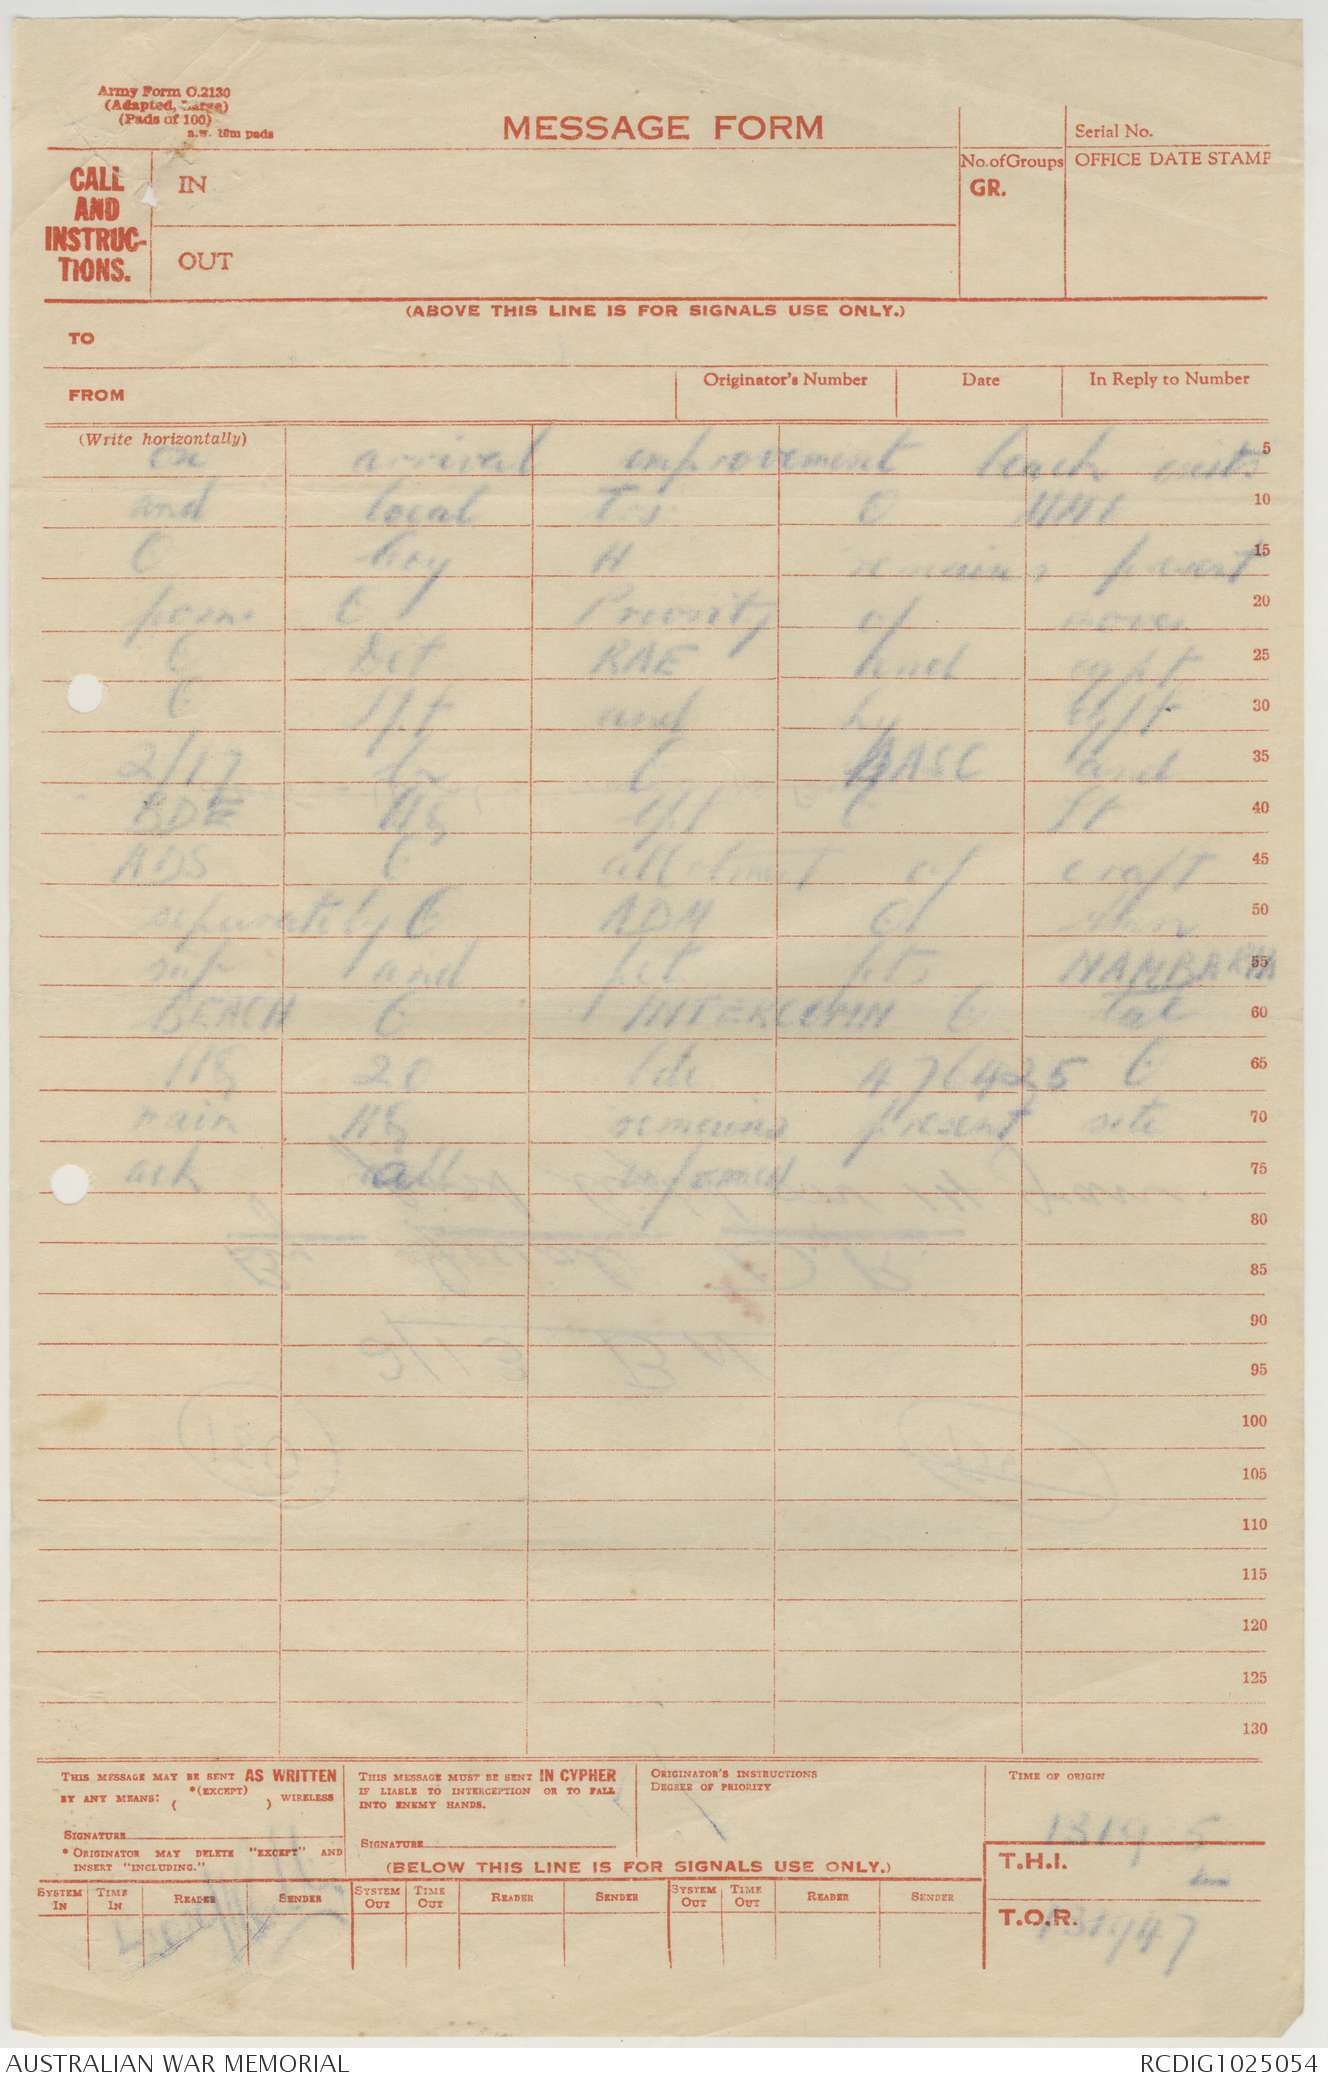 Army Form C.2130
(Adapted, Large)
(Pads of 100)
a.w. 18m pads
MESSAGE FORM
Serial No.
CALL AND INSTRUC-TIONS.
IN
No. of Groups
GR.
OFFICE DATE STAMP
OUT
(ABOVE THIS LINE IS FOR SIGNALS USE ONLY.)
TO
FROM
Originator's Number
Date
In Reply to Number
(Write horizontally)
on arrival improvement beach exits 5
and local 10
boy H remains present 15
posn Priority of moves 20
Det RAE and eqpt 25
and 30
2/17 bn AASC and 35
BDE HQ 40
ADS allotment of craft 45
separately ADM 50
sup and pet pts NAMBARIA 55
BEACH INTERCOMN Tac 60
HQ 20 bde 476425 65
main HQ remains present site 70
ack all informed 75
80
85
90
95
100
105
110
115
120
125
130
THIS MESSAGE MAY BE SENT AS WRITTEN
BY ANY MEANS: *(EXCEPT) ( ) WIRELESS
SIGNATURE
* ORIGINATOR MAY DELETE "EXCEPT" AND
INSERT "INCLUDING."
THIS MESSAGE MUST BE SENT IN CYPHER
IF LIABLE TO INTERCEPTION OR TO FALL
INTO ENEMY HANDS.
SIGNATURE
ORIGINATOR'S INSTRUCTIONS
DEGREE OF PRIORITY
TIME OF ORIGIN
(BELOW THIS LINE IS FOR SIGNALS USE ONLY.)
T.H.I.
SYSTEM IN
TIME IN
READER
SENDER
SYSTEM OUT
TIME OUT
READER
SENDER
SYSTEM OUT
TIME OUT
READER
SENDER
T.O.R. 131947
AUSTRALIAN WAR MEMORIAL
RCDIG1025054